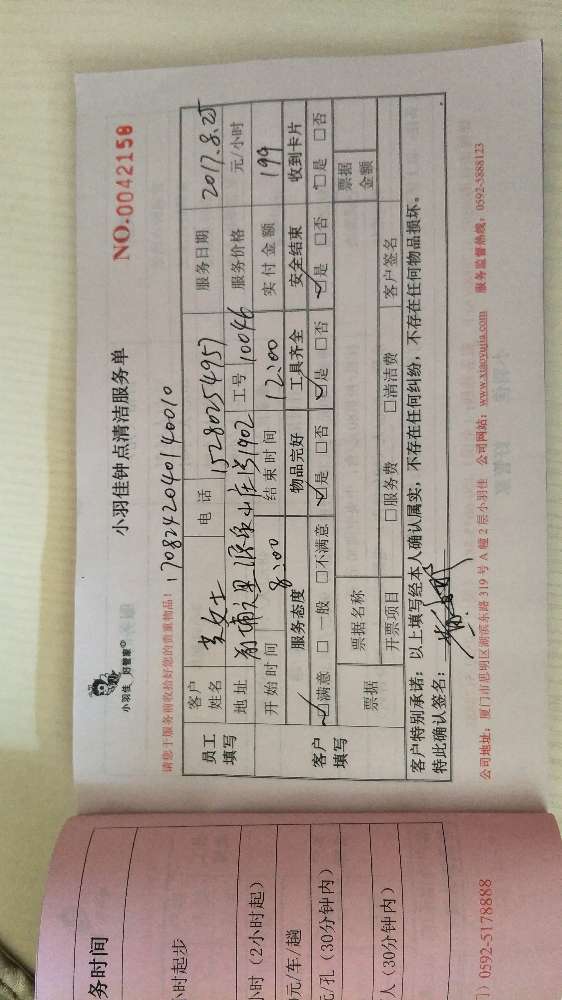 小羽佳 好管家
小羽佳钟点清洁服务单
NO.0042150
请您于服务前收拾好您的贵重物品！
1708242040140010
员工填写
客户姓名 女士 电话 15280254957 服务日期 2017.8.25
地址 1902 工号 10046 服务价格 元/小时
开始时间 8:00 结束时间 12:00 实付金额 199
客户填写
服务态度 物品完好 工具齐全 安全结束 收到卡片
☑满意 □一般 □不满意 ☑是 □否 ☑是 □否 ☑是 □否 □是 □否
票据 票据名称 票据金额
开票项目 □服务费 □清洁费 客户签名
客户特别承诺：以上填写经本人确认属实，不存在任何纠纷，不存在任何物品损坏。
特此确认签名：
公司地址：厦门市思明区湖滨东路319号A幢2层小羽佳 公司网站：www.xiaoyujia.com 服务监督热线：0592-5888123
务时间
小时起步
小时（2小时起）
元/车/趟
元/孔（30分钟内）
人（30分钟内）
0592-5178888